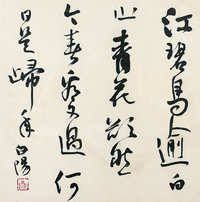 江碧鳥逾白
山青花欲然
今春看又過何
日是歸年 白陽